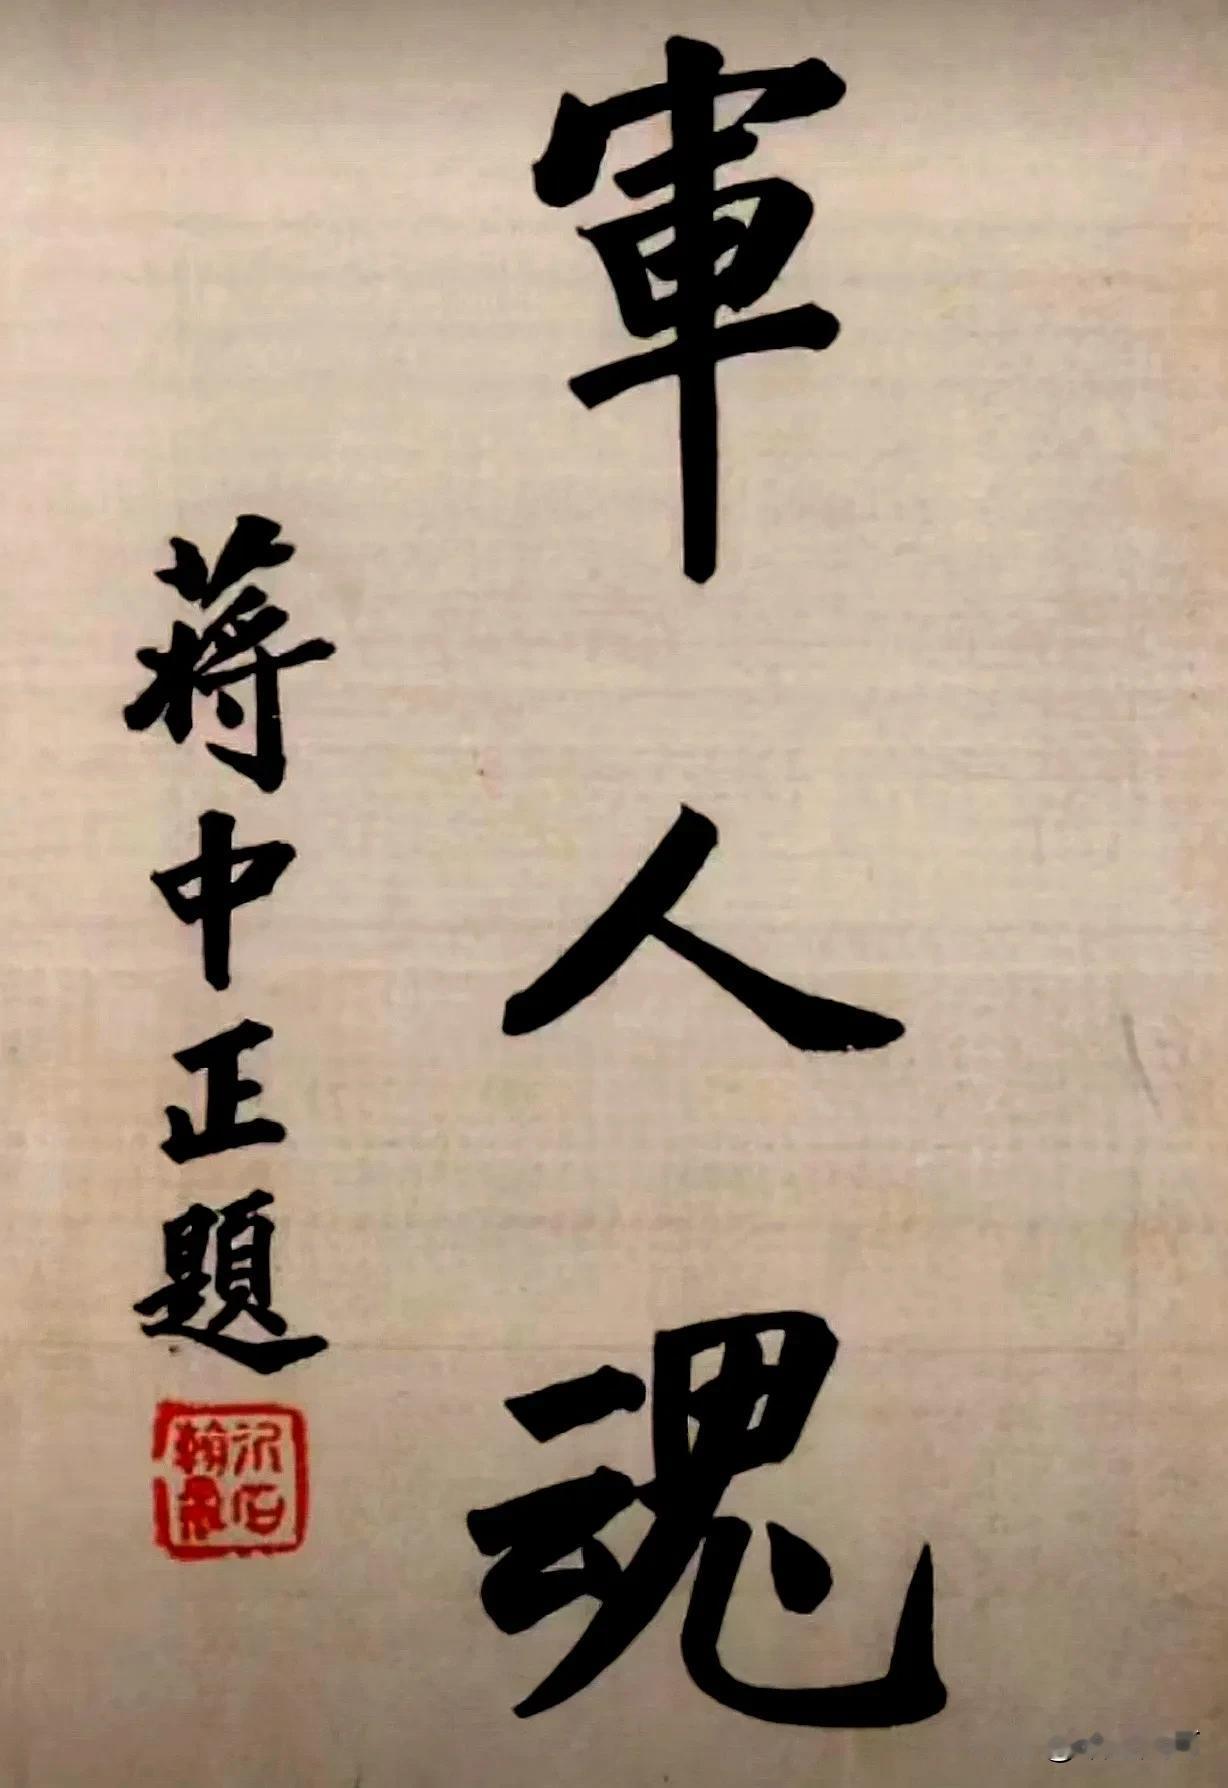 軍人魂
蔣中正題